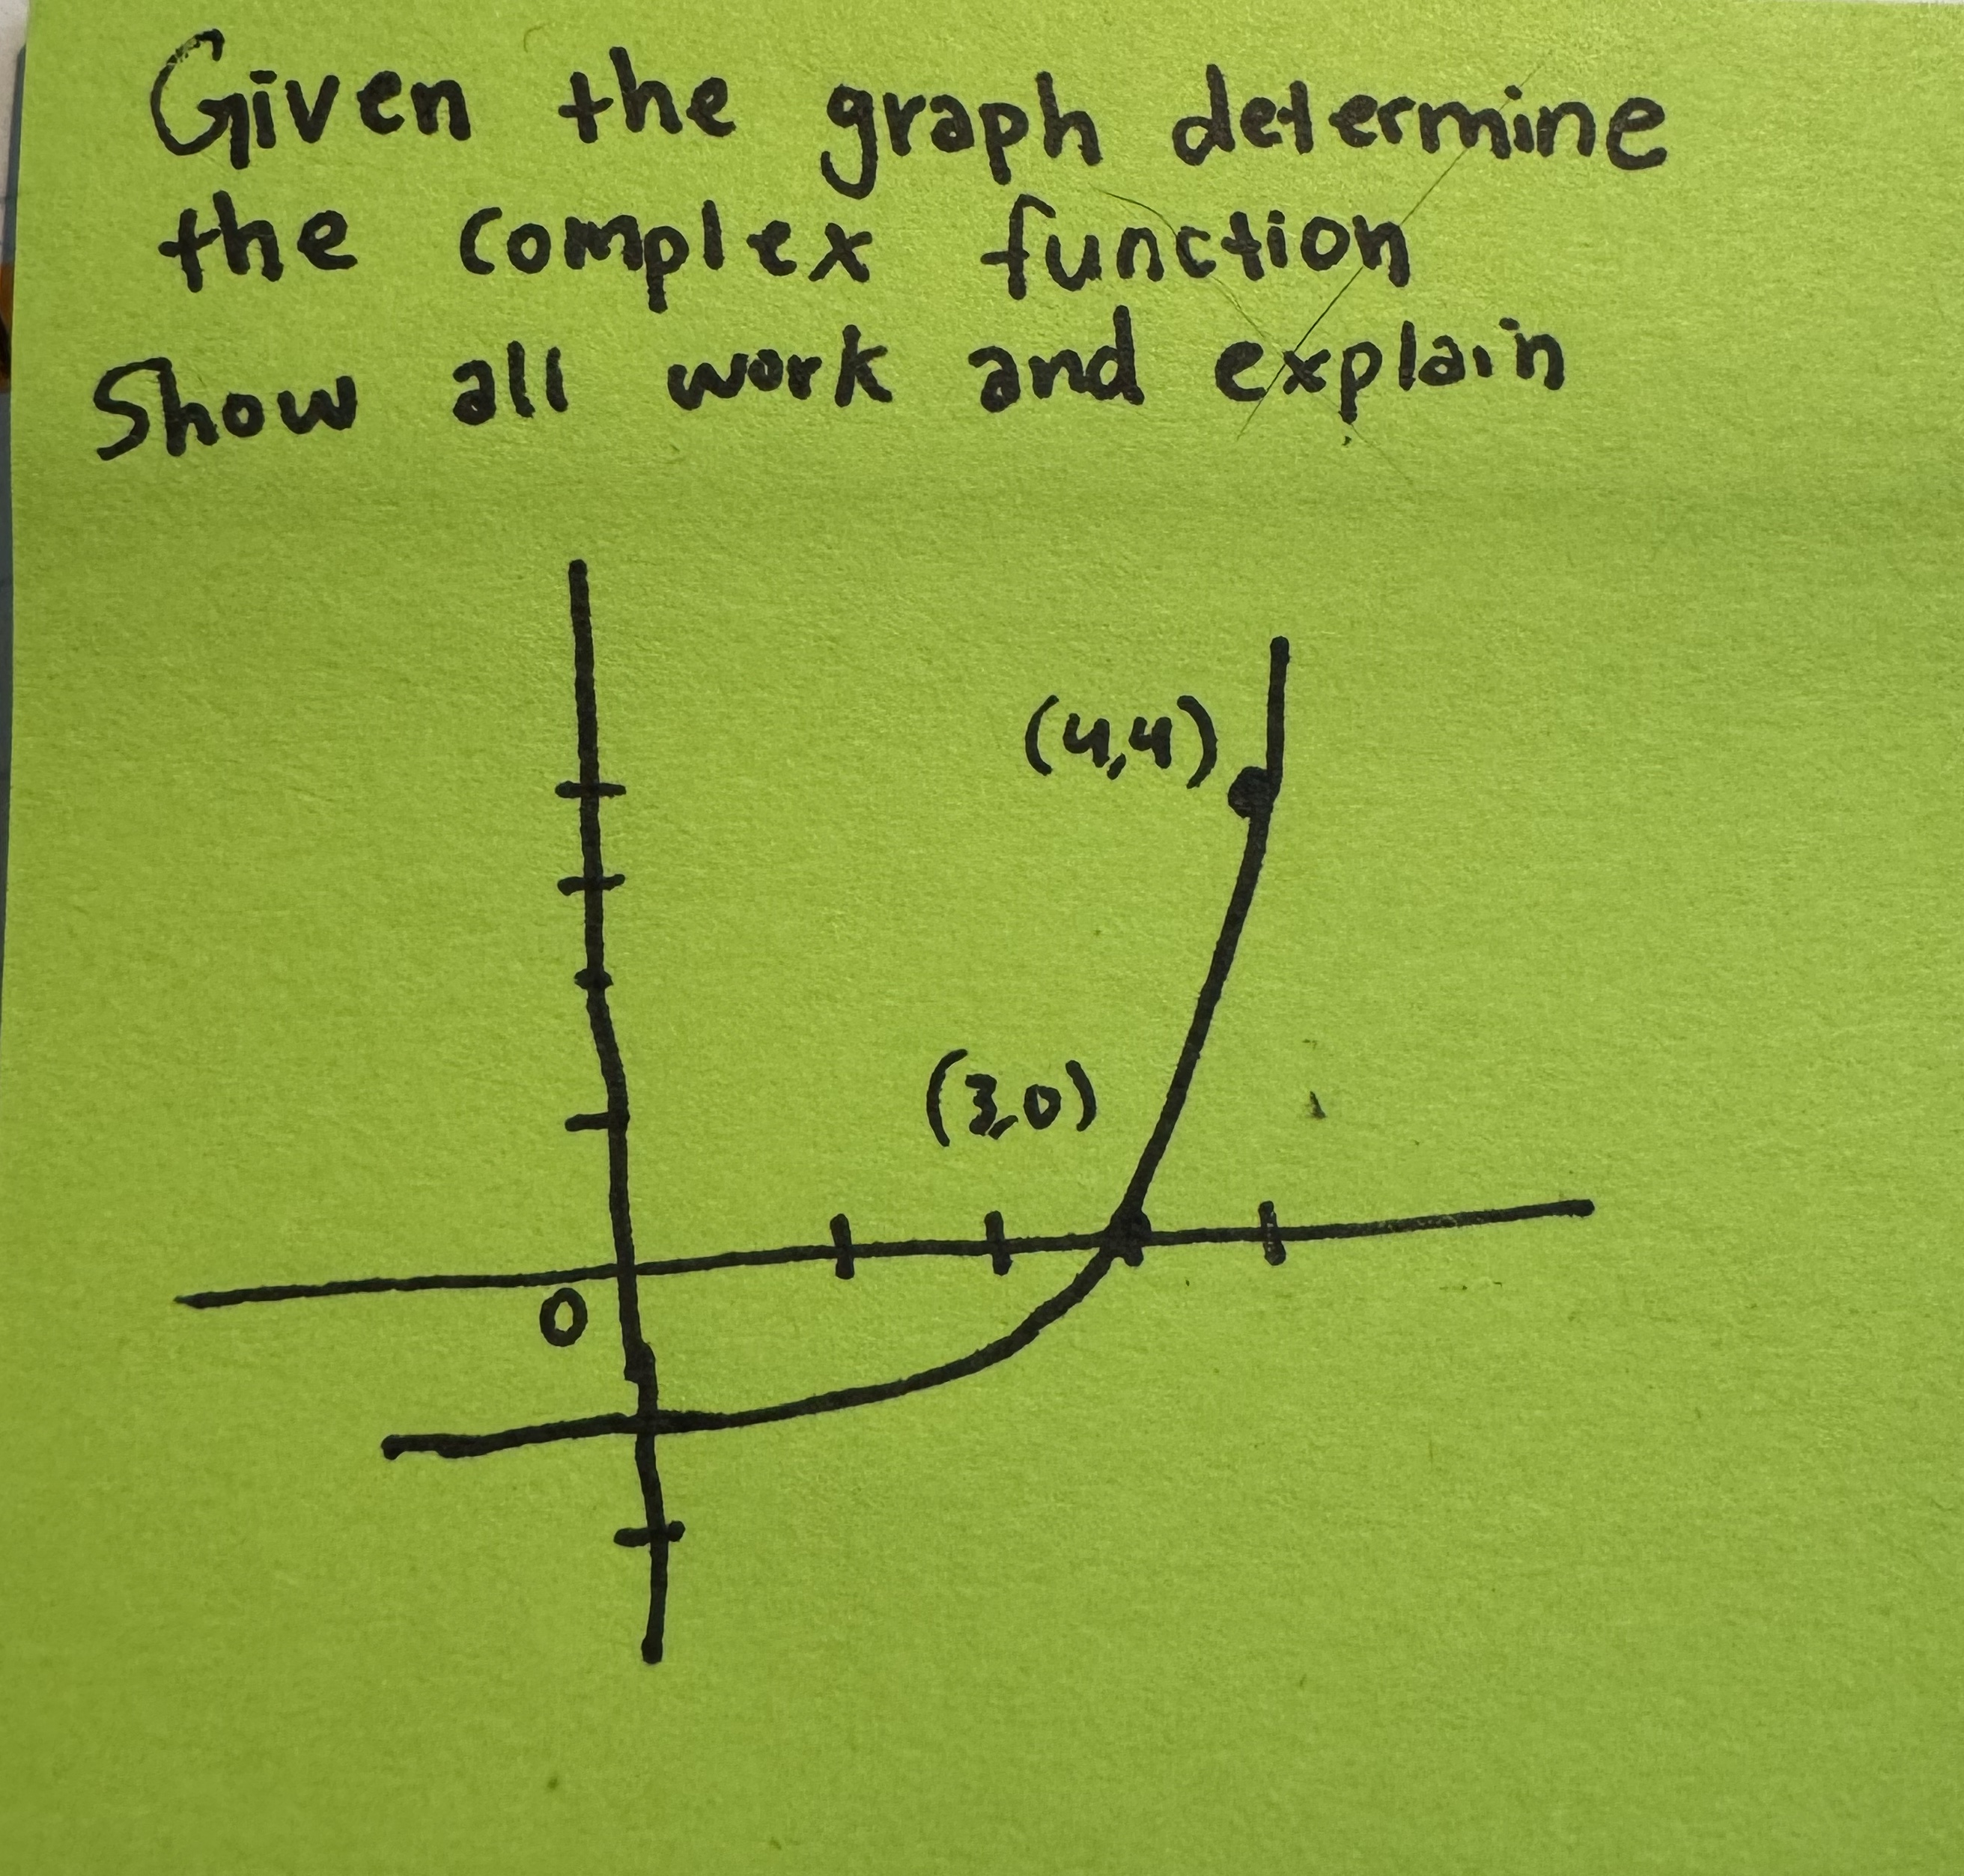 Given the graph determine
the complex function
Show all work and explain
(4,4)
(3,0)
0